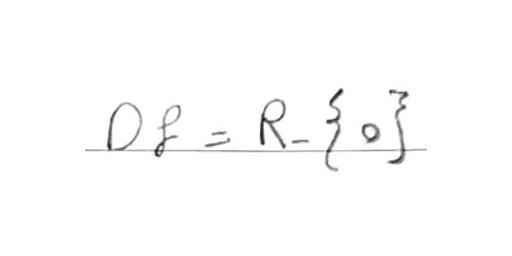 Df = R - {0}